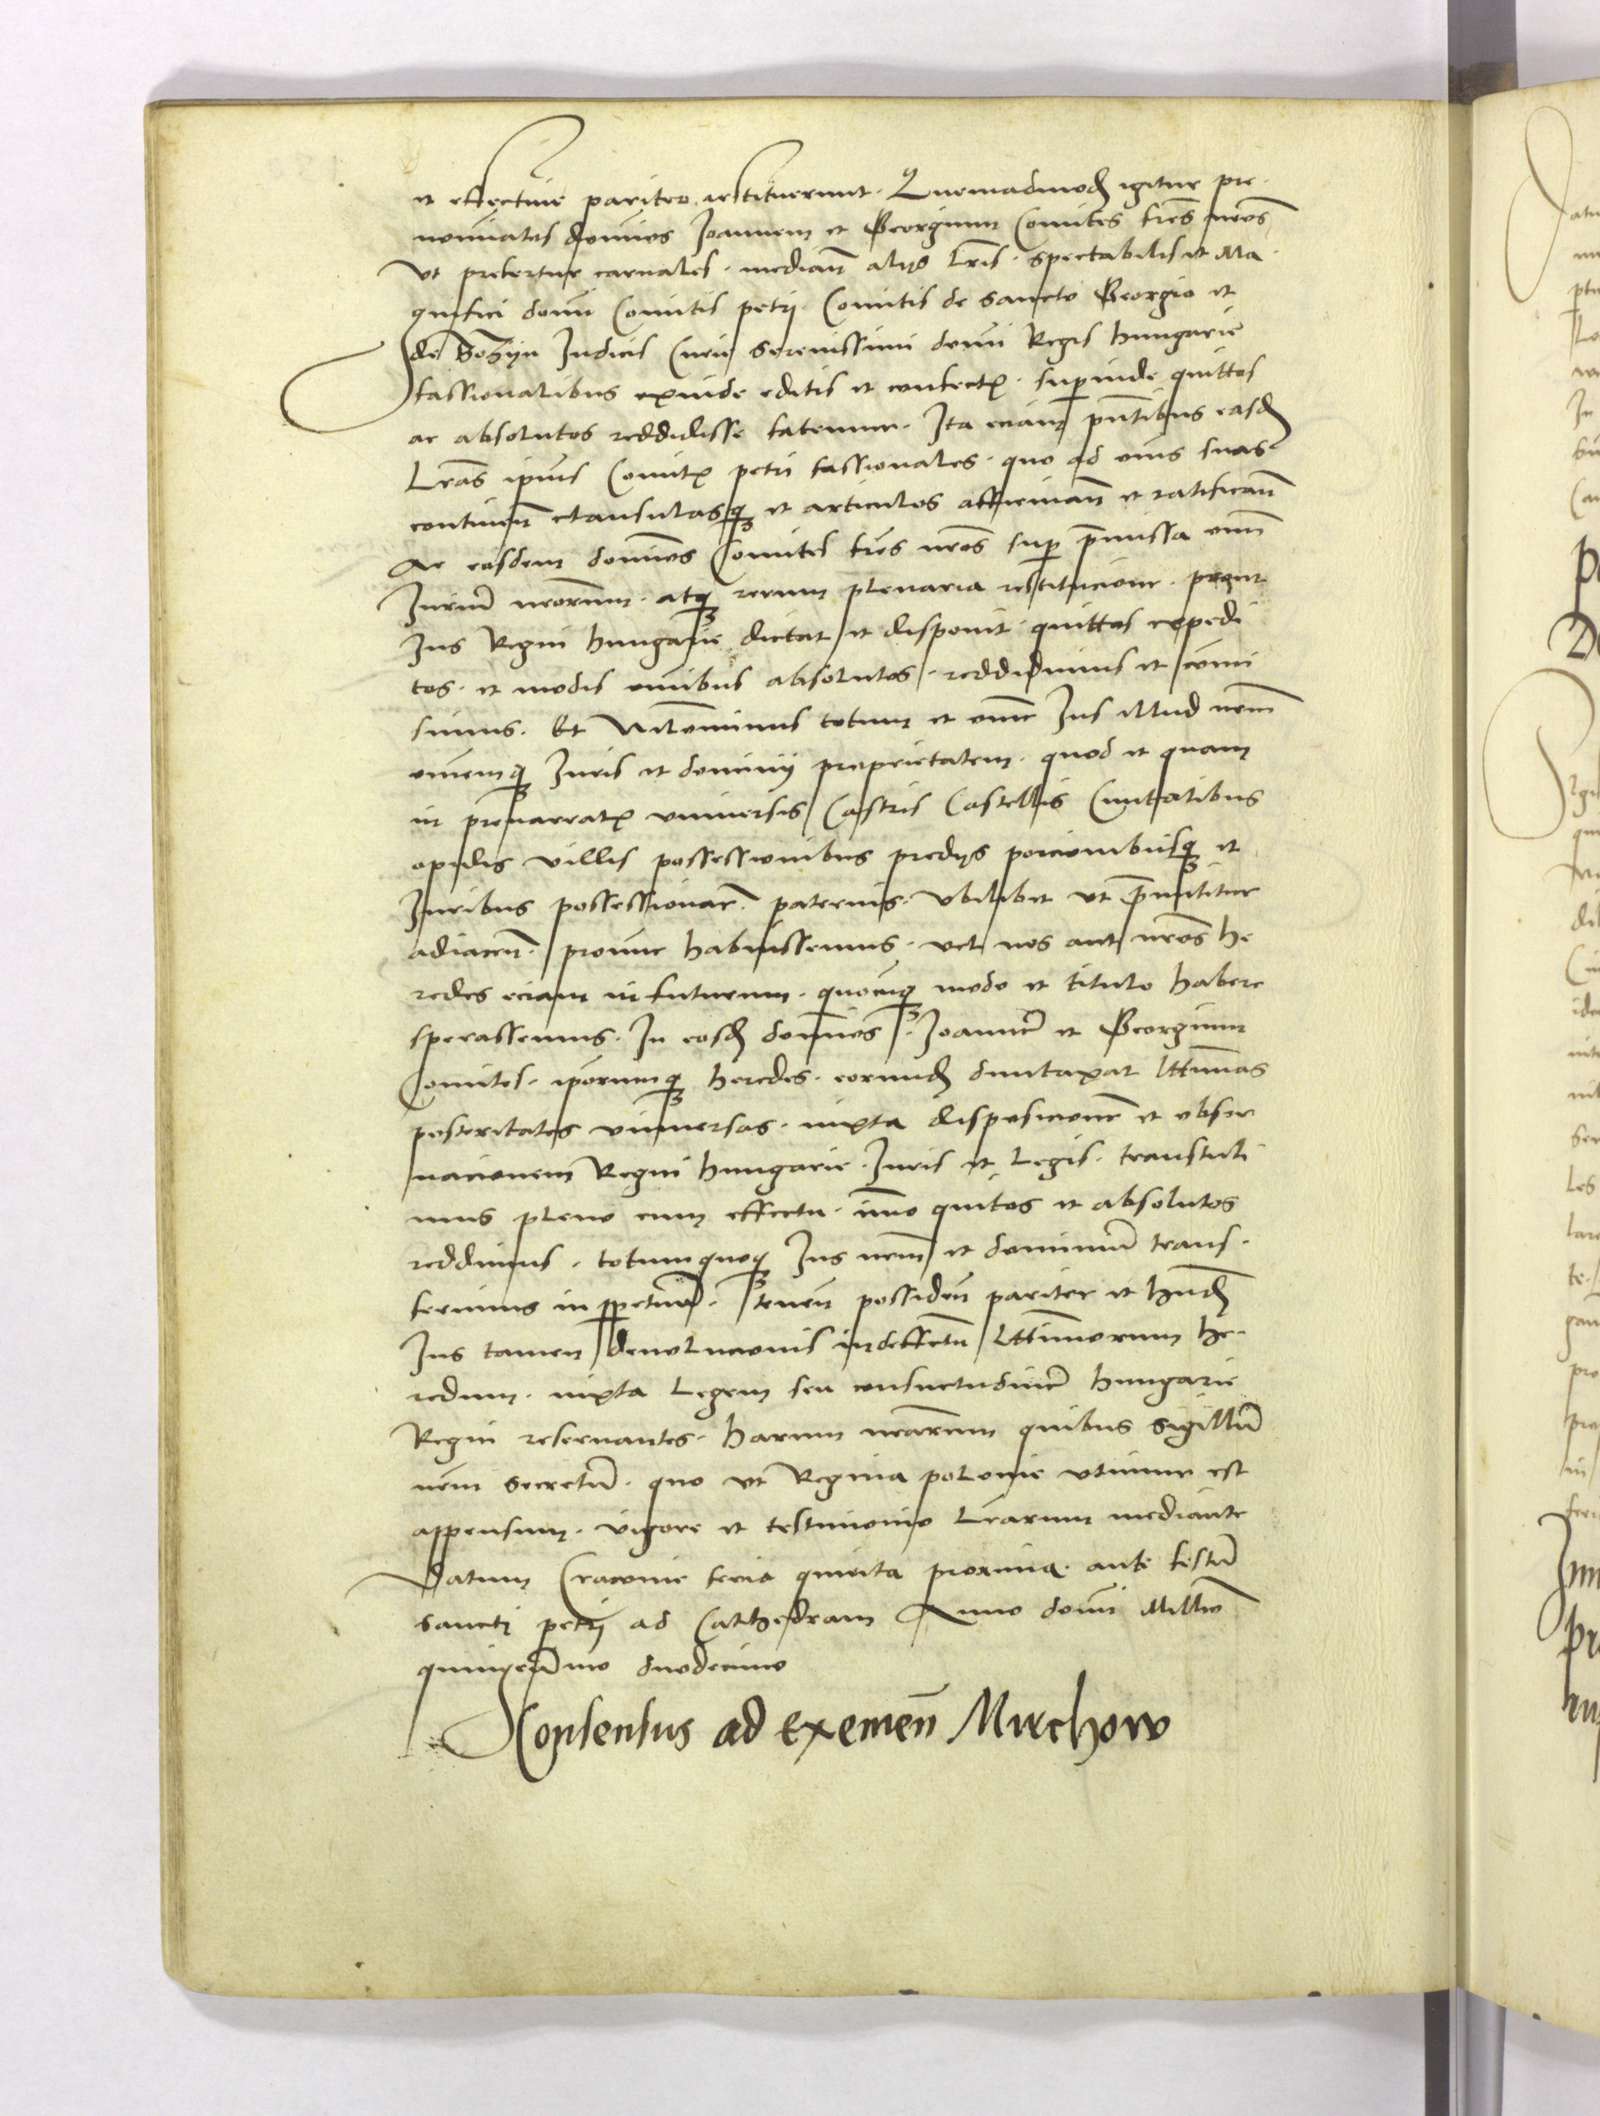 et effectiue pariter restituerunt. Quemadmod igitur pre-
nominatos domios Joannem et Georgium Comites fres nros
Vt prefertur carnales. mediant alijs lris. spectabilis et Ma-
gnifici domi Comitis petri. Comitis de sancto Georgio et
de Bozyn Judicis Curie serenissimi domi Regis hungarie
fassionalibus exinde editis et confect. superinde quittos
ac absolutos reddidisse fatemur. Ita eciam pntibus easd
Lras ipius Comit petri fassionales. quo ad omis suas
continen clausulasq et articulos affirmam et ratificam
Ac eosdem domios Comites fres nros super premissa omi
Jurium nrorum. atq rerum plenaria restitucione. prout
Jus Regni hungarie dictat et disponit quittos expedi
tos. et modis omibus absolutos. reddidimus et comi
simus. Et Nilominus totum et ome Jus illud nrm
omnemq Juris et dominij proprietatem. quod et quam
in prenarrat vniuersis Castris Castellis Ciuitatibus
opidis villis possessionibus predijs porcionibusq et
Juribus possessionar. paternis. vbilibet vt premittitur
adiacen. pronunc habuissemus. vel nos aut nros he
redes eciam in futurum. quocuq modo et titulo habere
sperassemus. In eosd domios. Joannem et Georgium
Comites. iporumq heredes. eorund duntaxat lttimas
posteritates vniuersas. iuxta disposicionem et obser
uacionem Regni hungarie. Juris et Legis. transtuli
mus pleno cum effectu. imo quitos et absolutos
reddimus. totumquoq Jus nrm et dominium trans-
ferimus in perpetuum. tenen possiden pariter et hnd
Jus tamen deuolucionis in deffectu lttimorum he-
redum. iuxta Legem seu consuetudinem hungarie
Regni reseruantes. harum nrarum quibus sigillum
nrm secretum. quo vt Regina polonie vtimur est
appensum. vigore et testimonio lrarum mediante
Datum Cracouie feria quinta proxima. ante festum
sancti petri ad Cathedram Anno domi Millio
quingentimo duodecimo
Consensus ad exemen Mirchow